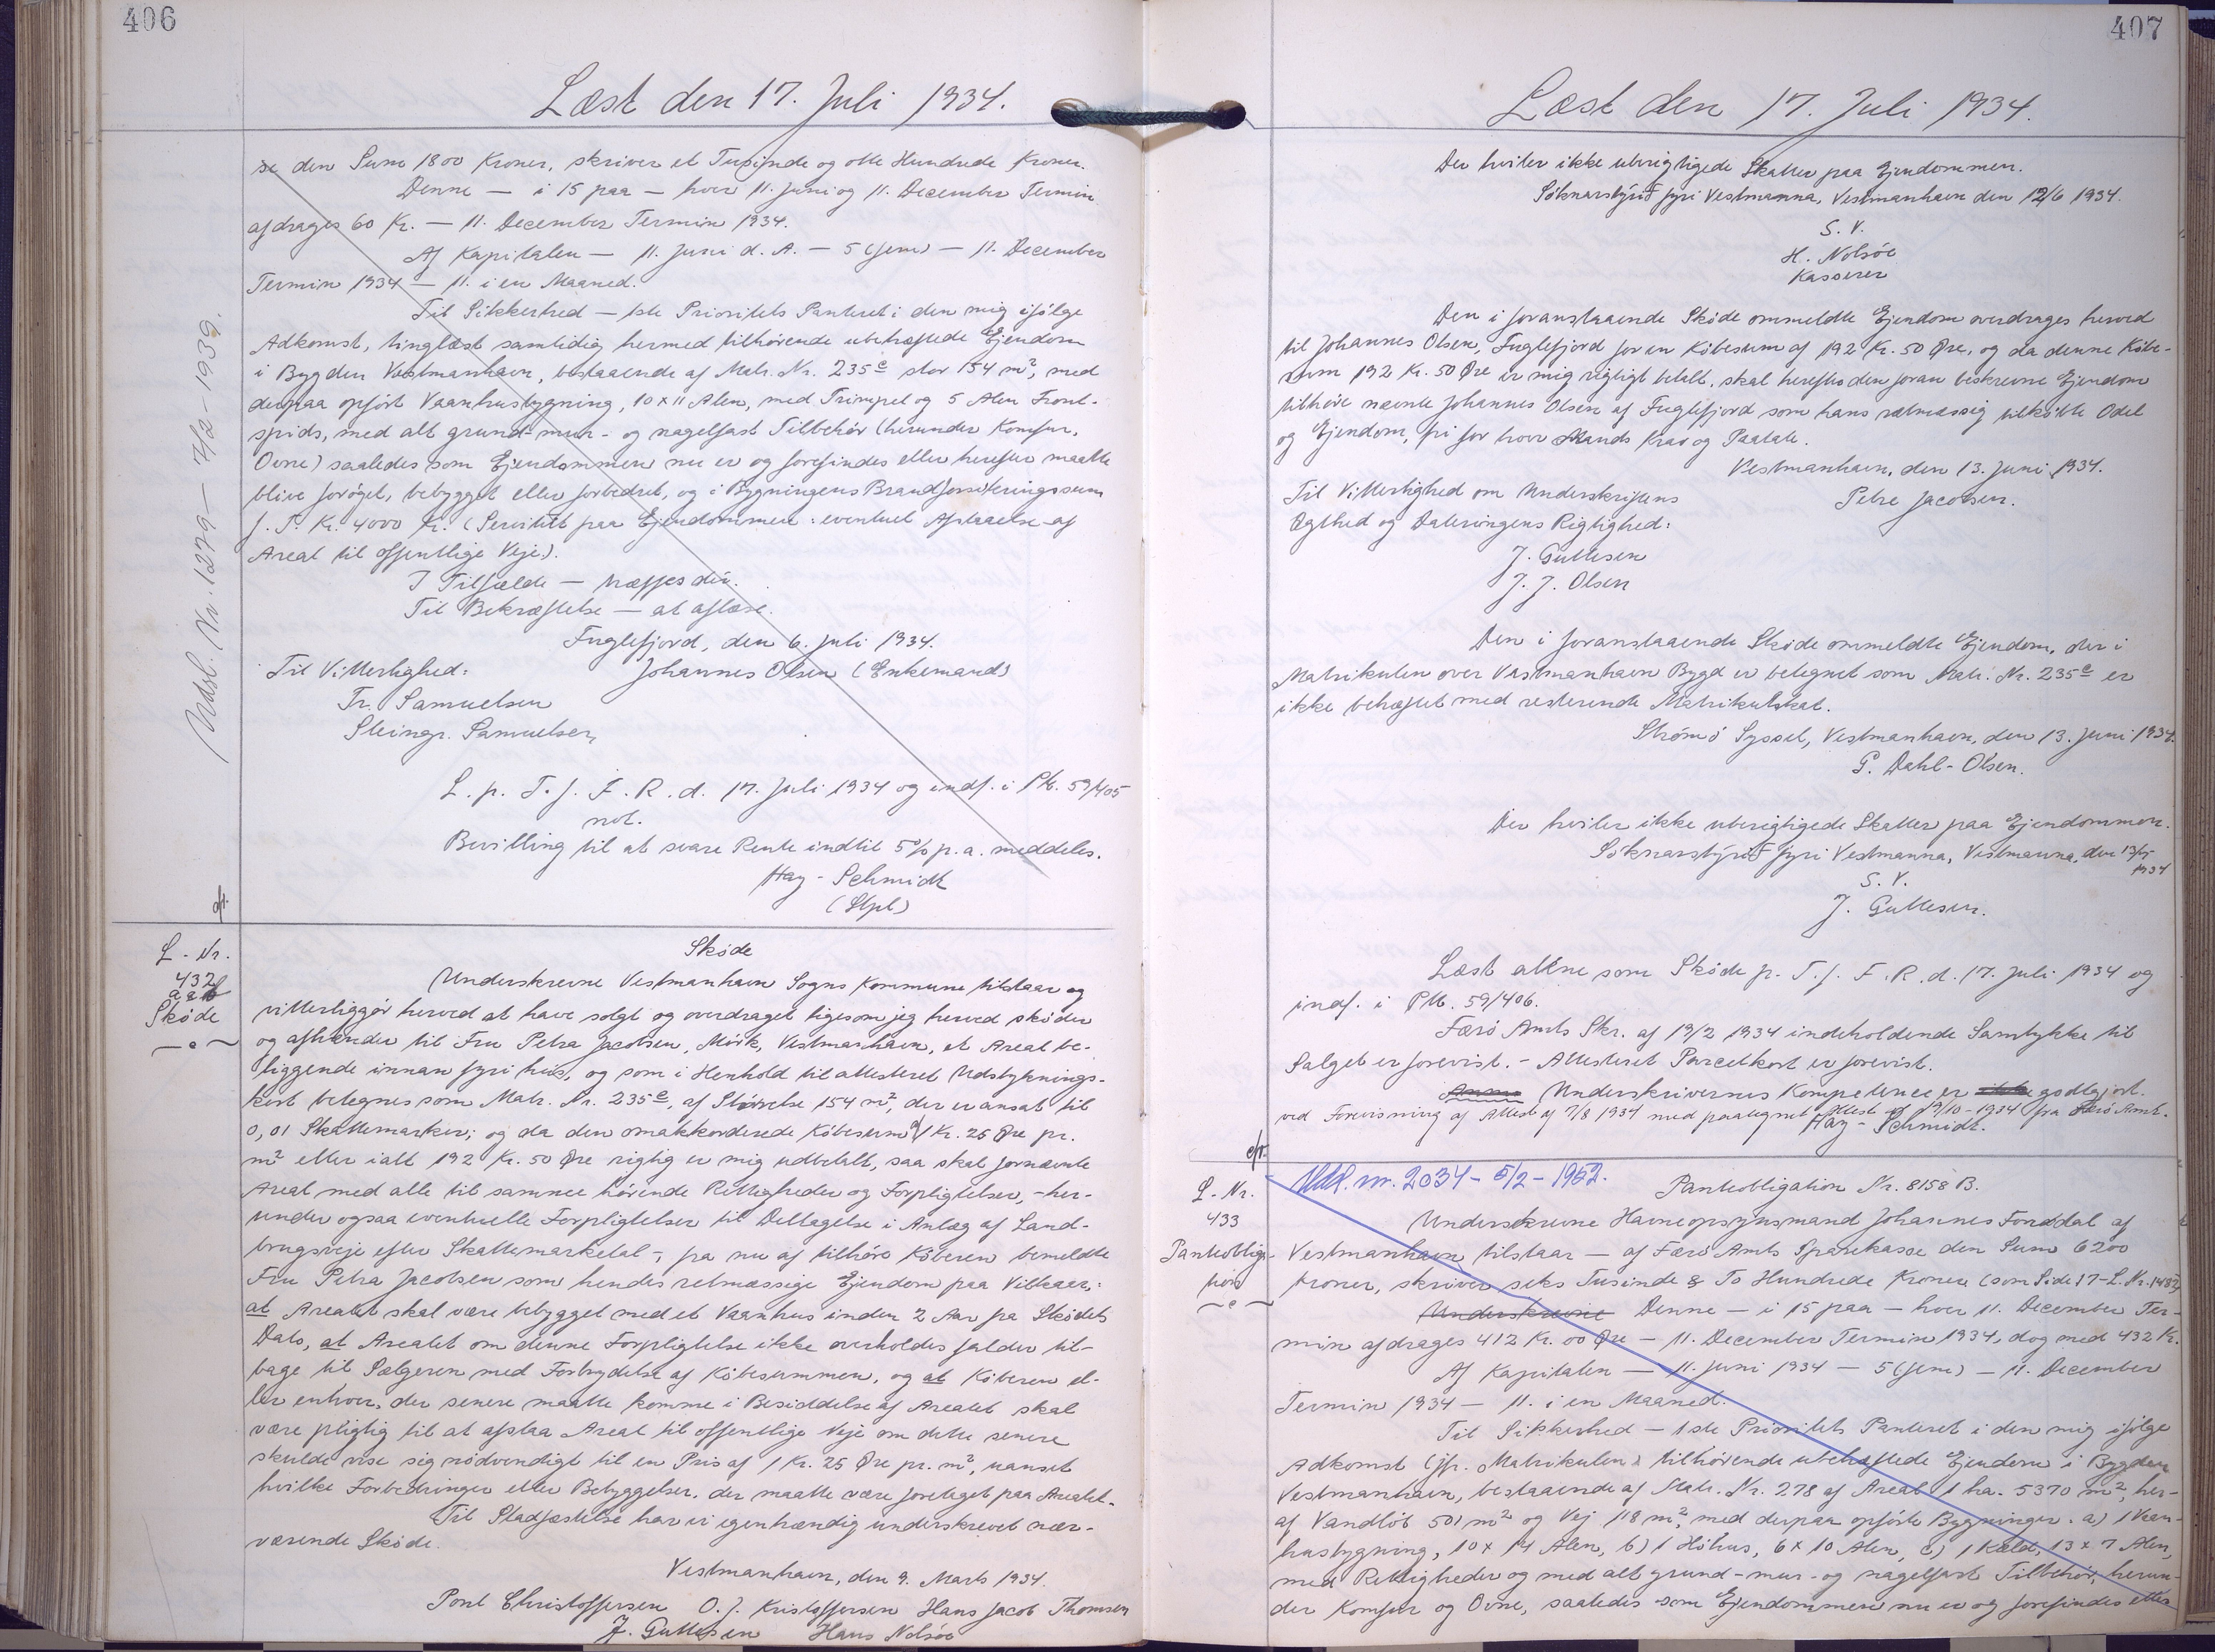 406
Læst den 17. Juli 1934.
se den Sum 1800 Kroner, skriver et Tusinde og otte Hundrede Kroner.
Denne — i 15 paa — hver 11. Juni og 11. December Termin
afdrages 60 Kr. — 11. December Termin 1934.
Af Kapitalen — 11. Juni d. A. — 5 (fem) — 11. December
Termin 1934 — 11. i en Maaned.
Til Sikkerhed — 1ste Prioritets Panteret i den mig ifølge
Adkomst, tinglæst samtidig hermed tilhørende ubehæftede Ejendom
i Bygden Vestmanhavn, bestaaende af Matr. Nr. 235e stor 154 m², med
derpaa opført Vaanhusbygning, 10 x 11 Alen, med Trimpel og 5 Alen Front-
spids, med alt grund-mur- og nagelfast Tilbehør (herunder Komfur,
Ovne) saaledes som Ejendommen nu er og forefindes eller herefter maatte
blive forøget, bebygget eller forbedret, og i Bygningens Brandforsikringssum
f. T. Kr. 4000 Kr. (Servitut paa Ejendommen: eventuel Afstaaelse af
Areal til offentlige Veje).
I Tilfælde — Næffes dér.
Til Bekræftelse — at aflæse.
Fuglefjord, den 6. Juli 1934.
Til Vitterlighed: Johannes Olsen (Enkemand)
Tr. Samuelsen
Steingr. Samuelsen
L. p. T. f. F. R. d. 17. Juli 1934 og indf. i Pb. 59/405
not.
Bevilling til at svare Rente indtil 5% p.a. meddeles.
Hay-Schmidt
(Stpl)
Udsl. Nr. 1279 — 7/2 - 1939.
L. Nr.
432
Skøde
Skøde
Underskrevne Vestmanhavn Sogns Kommune tilstaar og
vitterliggør herved at have solgt og overdraget ligesom jeg herved skøder
og afhænder til Fru Petra Jacobsen, Mörk, Vestmanhavn, et Areal be-
liggende innan fyri hús, og som i Henhold til attesteret Udstyknings-
kort betegnes som Matr. Nr. 235e, af Størrelse 154 m², der er ansat til
0,01 Skattemarker; og da den omakkorderede Købesum á 1 Kr. 25 Øre pr.
m² eller ialt 192 Kr. 50 Øre rigtig er mig udbetalt, saa skal fornævnte
Areal med alle til samme hørende Rettigheder og Forpligtelser, - her-
under ogsaa eventuelle Forpligtelser til Deltagelse i Anlæg af Land-
brugsveje efter Skattemarketal -, fra nu af tilhøre Køberen bemeldte
Fru Petra Jacobsen som hendes retmæssige Ejendom paa Vilkaar:
at Arealet skal være bebygget med et Vaanhus inden 2 Aar fra Skødets
Dato, at Arealet om denne Forpligtelse ikke overholdes falder til-
bage til Sælgeren med Fortrydelse af Købesummen, og at Køberen el-
ler enhver, der senere maatte komme i Besiddelse af Arealet skal
være pligtig til at afstaa Areal til offentlige Veje om dette senere
skulde vise sig nødvendigt til en Pris af 1 Kr. 25 Øre pr. m², uanset
hvilke Forbedringer eller Bebyggelser, der maatte være foretaget paa Arealet.
Til Stadfæstelse har vi egenhændig underskrevet nær-
værende Skøde.
Vestmanhavn, den 9. Marts 1934.
Poul Christoffersen O. J. Kristoffersen Hans Jacob Thomsen
J. Guttesen Hans Nolsøe
407
Læst den 17. Juli 1934.
Der hviler ikke uberigtigede Skatter paa Ejendommen.
Sóknarstýrið fyri Vestmanna, Vestmanhavn den 12/6 1934.
S. V.
H. Nolsöe
Kasserer
Den i foranstaaende Skøde ommeldte Ejendom overdrages herved
til Johannes Olsen, Fuglefjord for en Købesum af 192 Kr. 50 Øre, og da denne Købe-
sum 192 Kr. 50 Øre er mig rigtigt betalt, skal herefter den foran beskrevne Ejendom
tilhøre nævnte Johannes Olsen af Fuglefjord som hans retmæssig tilkøbte Odel
og Ejendom, fri for hver Mands Krav og Paatale.
Vestmanhavn, den 13. Juni 1934.
Til Vitterlighed om Underskriftens Petra Jacobsen.
Ægthed og Dateringens Rigtighed:
J. Guttesen
J. J. Olsen
Den i foranstaaende Skøde ommeldte Ejendom, der i
Matrikulen over Vestmanhavn Bygd er betegnet som Matr. Nr. 235e er
ikke behæftet med resterende Matrikulskat.
Strømø Syssel, Vestmanhavn, den 13. Juni 1934.
P. Dahl-Olsen.
Der hviler ikke uberigtigede Skatter paa Ejendommen.
Sóknarstýrið fyri Vestmanna, Vestmanna, den
1934
S. V.
J. Guttesen.
Læst allene som Skøde p. T. f. F. R. d. 17. Juli 1934 og
indf. i Pb. 59/406.
Færø Amts Skr. af 19/2 1934 indeholdende Samtykke til
Salget er forevist. - Attesteret Parcelkort er forevist.
Underskrivernes Kompetence er ikke godtgjort.
ved Forevisning af Attest af 7/8 1934 med paategnet Attest af 19/10-1934 fra Færø Amt.
Hay-Schmidt.
Udsl. nr. 2034 - 5/2 - 1952.
L. Nr.
433
Pantobliga-
tion
Pantobligation Nr. 8158 B.
Underskrevne Havneopsynsmand Johannes Forddal af
Vestmanhavn tilstaar — af Færø Amts Sparekasse den Sum 6200
Kroner, skriver seks Tusinde & To Hundrede Kroner (som Side 17 - L. Nr. 1482)
Underskrevne Denne — i 15 paa — hver 11. December Ter-
min afdrages 412 Kr. 00 Øre — 11. December Termin 1934, dog med 432 Kr.
Af Kapitalen — 11. Juni 1934 — 5 (fem) — 11. December
Termin 1934 — 11. i en Maaned.
Til Sikkerhed — 1ste Prioritets Panteret i den mig ifølge
Adkomst (jfr. Matrikulen) tilhørende ubehæftede Ejendom i Bygden
Vestmanhavn, bestaaende af Matr. Nr. 278 af Areal 1 ha. 5370 m², her-
af Vandløb 501 m² og Vej 118 m², med derpaa opførte Bygninger: a) 1 Vaan-
husbygning, 10 x 14 Alen, b) 1 Høhus, 6 x 10 Alen, c) 1 Kæld, 13 x 7 Alen,
med Rettigheder og med alt grund-mur- og nagelfast Tilbehør, herun-
der Komfur og Ovne, saaledes som Ejendommen nu er og forefindes eller